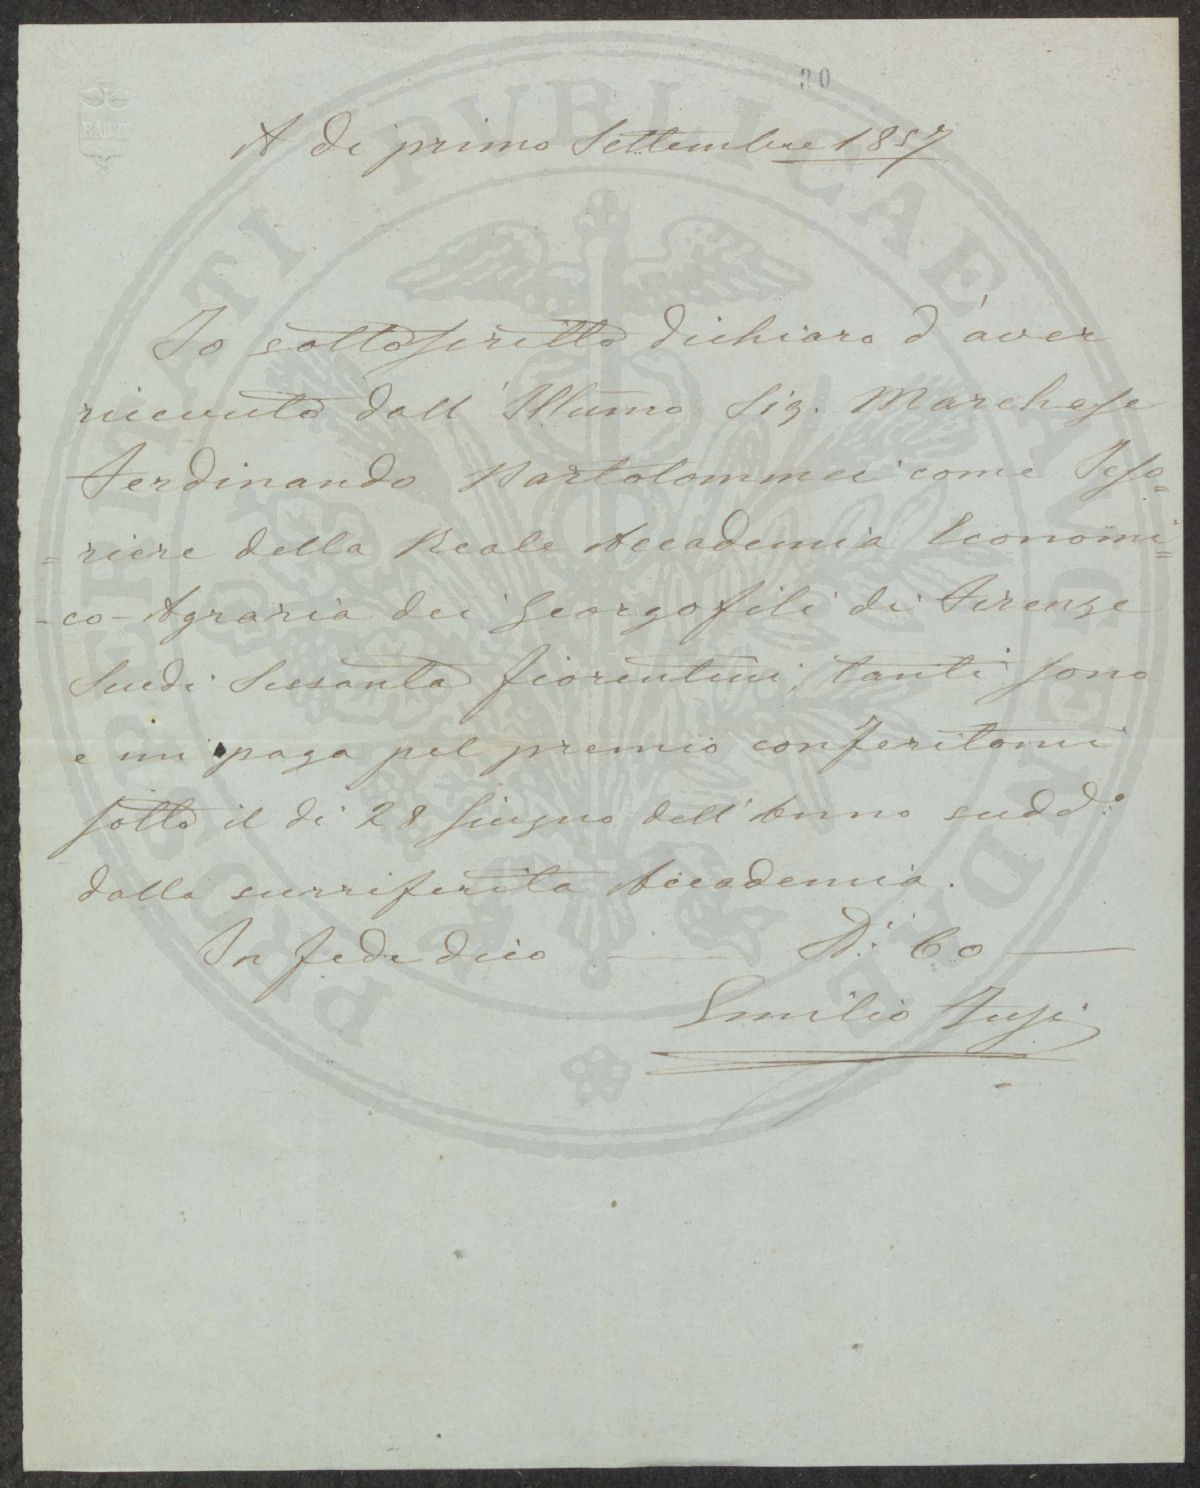 30
BATH
A dì primo Settembre 1857
Io sottoscritto dichiaro d'aver
ricevuto dall' Illumo Sig. Marchese
Ferdinando Bartolommei come Teso=
=riere della Reale Accademia Economi=
-co-Agraria dei Georgofili di Firenze
Scudi Sessanta fiorentini, tanti sono
e mi paga pel premio conferitomi
sotto il dì 28 Giugno dell' Anno sudd.o
dalla surriferita Accademia.
In fede dico — 60 —
Emilio
PROSPERITATI PVBLICAE AVGENDAE